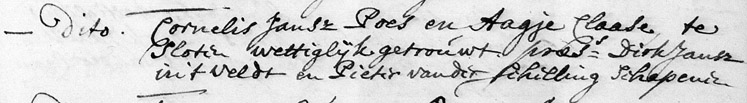 — Dito. Cornelis Jansz Poes en Aagje Claase, te
Sloten wettiglijk getrouwt. præss. Dirk Jansz
in't veldt en Pieter vander Schilling Schepenen